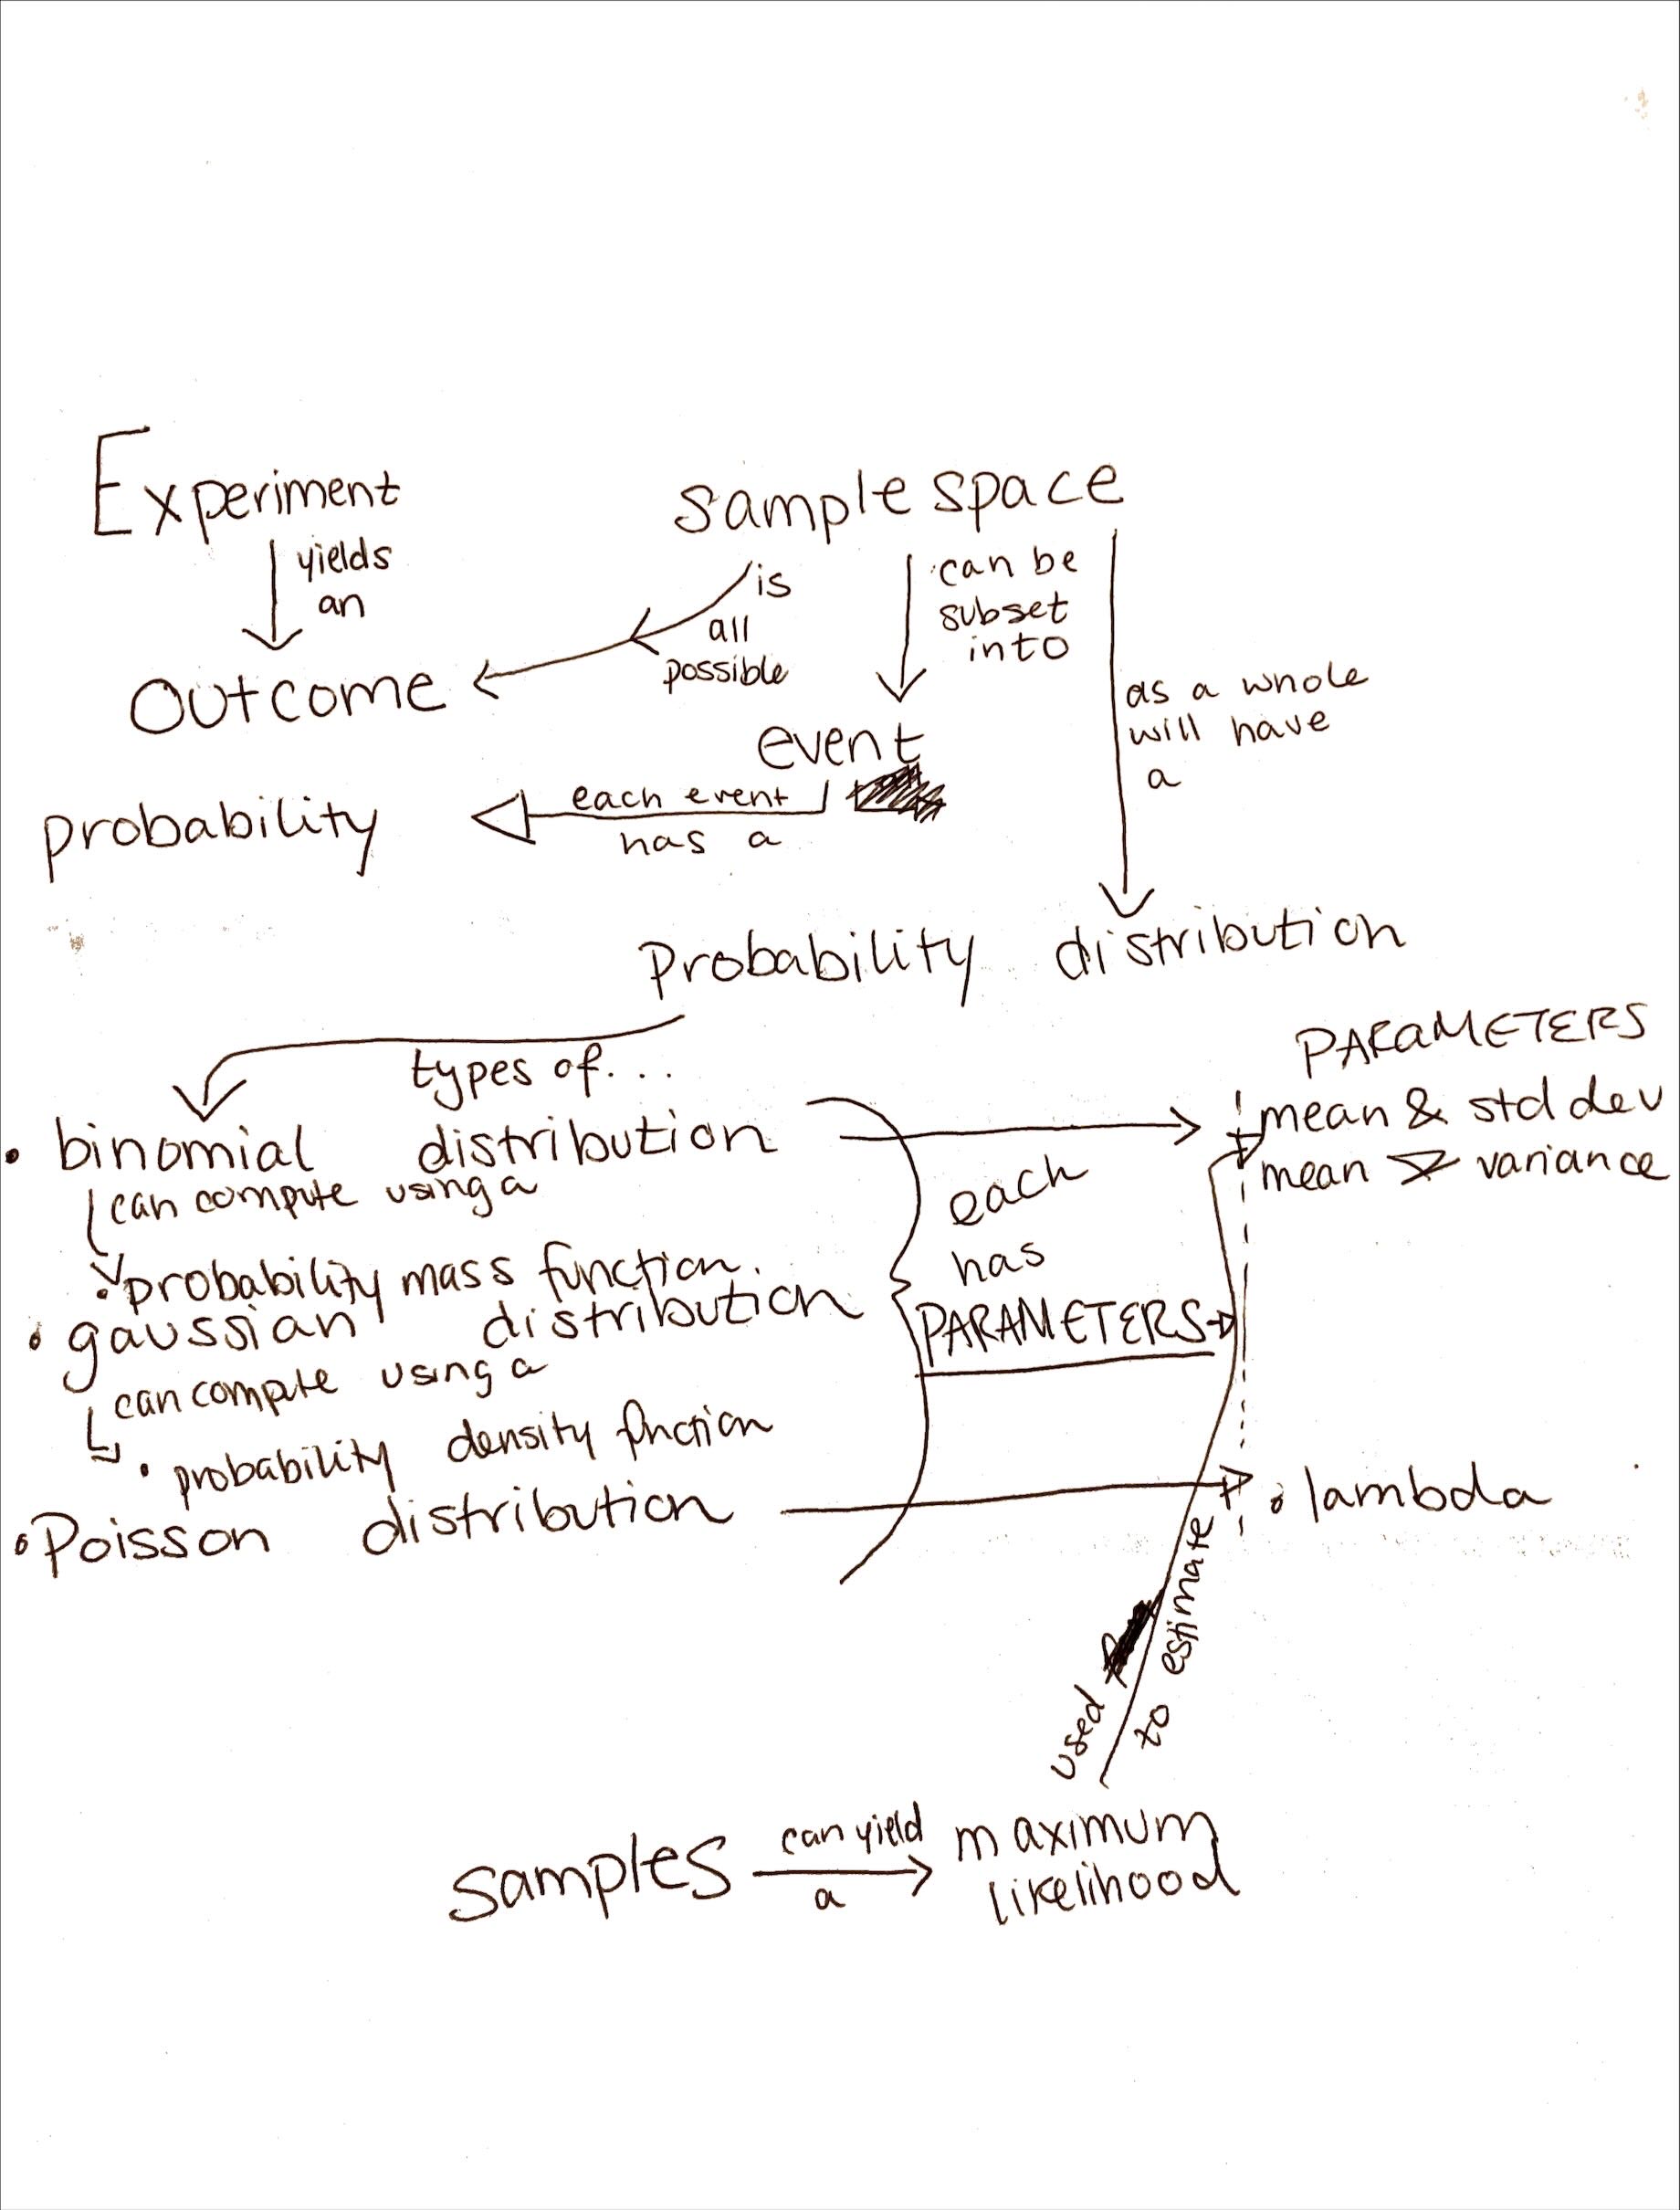 Experiment
sample space
yields
an
is
all
possible
can be
subset
into
as a whole
will have
a
outcome
event
each event
has a
probability
Probability distribution
types of...
PARAMETERS
• binomial distribution
can compute using a
• probability mass function.
• gaussian distribution
can compute using a
• probability density function
• Poisson distribution
each
has
PARAMETERS
mean & std dev
mean & variance
• lambda
used
to estimate
samples
can yield
a
maximum
likelihood